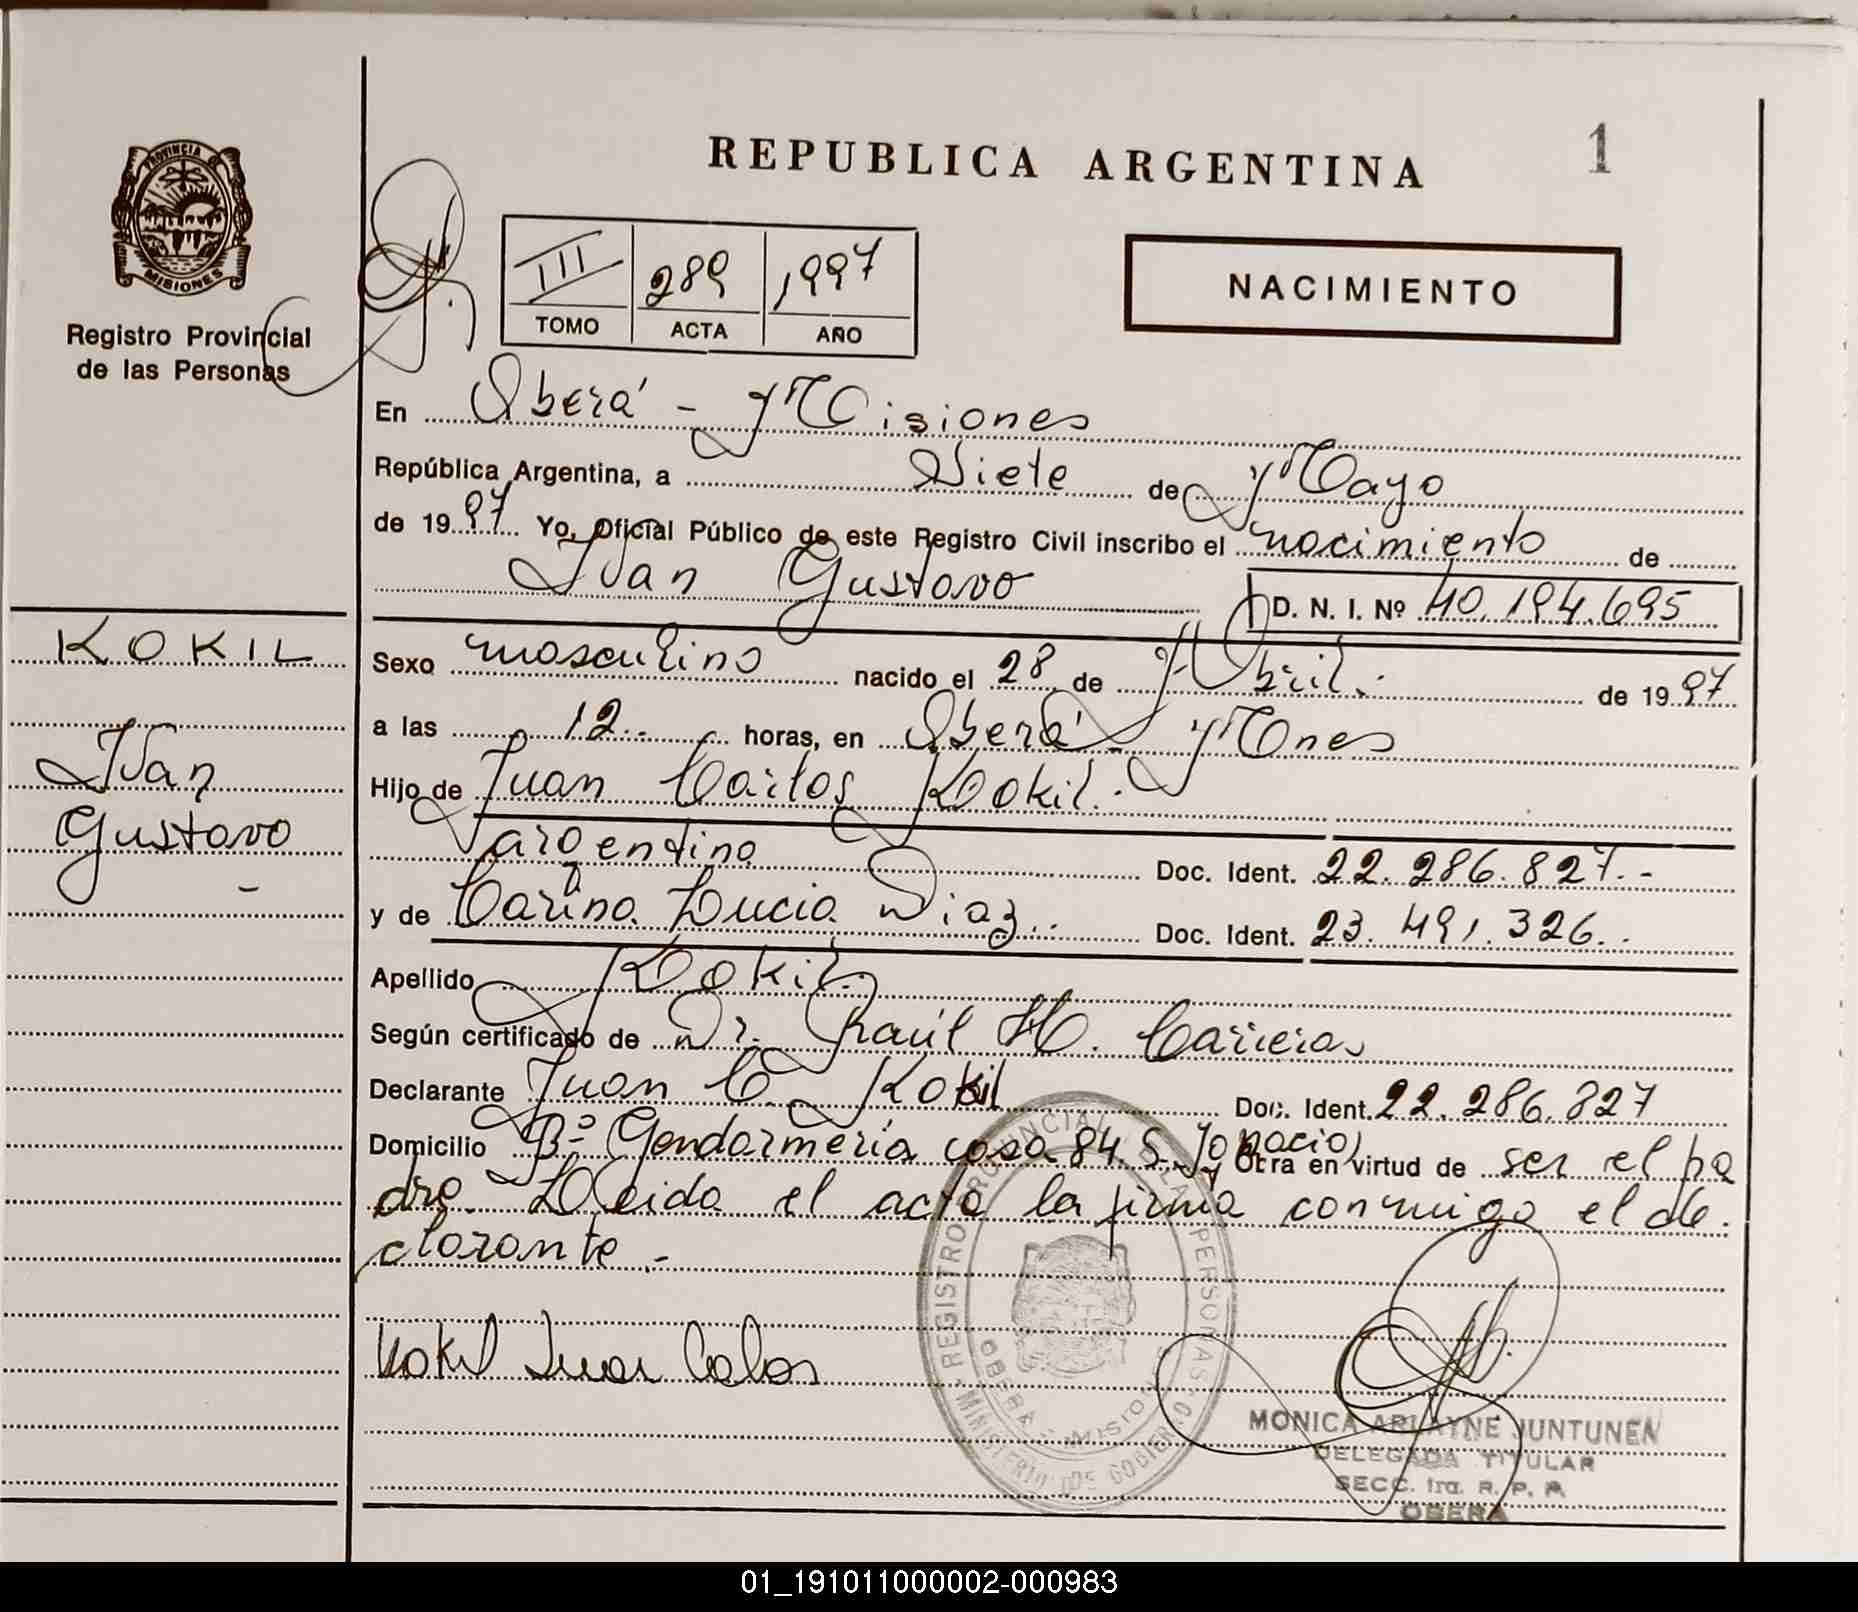 REPUBLICA ARGENTINA
1
PROVINCIA
MISIONES
Registro Provincial
de las Personas
III 289 1997
TOMO ACTA AÑO
NACIMIENTO
En Oberá - Misiones
República Argentina, a Siete de Mayo
de 1997 Yo, Oficial Público de este Registro Civil inscribo el nacimiento de
Ivan Gustavo D. N. I. Nº 40.194.695
KOKIL
Ivan
Gustavo -
Sexo masculino nacido el 28 de Abril.- de 1997
a las 12.. horas, en Oberá - Mnes
Hijo de Juan Carlos Kokil.-
argentino Doc. Ident. 22.286.827.-
y de Carina Lucia Diaz.. Doc. Ident. 23.491.326..
Apellido Kokil.
Según certificado de Dr. Raúl H. Carreras
Declarante Juan C. Kokil Doc. Ident. 22.286.827
Domicilio Bº Gendarmeria casa 84. S. Ignacio) y Otra en virtud de ser el pa
dre. Leida el acta la firma conmigo el de-
clarante.-
Kokil Juan Calos
REGISTRO PROVINCIAL DE LAS PERSONAS
MINISTERIO DE GOBIERNO
OBERA - MISIONES
MONICA ARLAYNE JUNTUNEN
DELEGADA TITULAR
SECC. 1ra. R. P. P.
OBERA
01_191011000002-000983